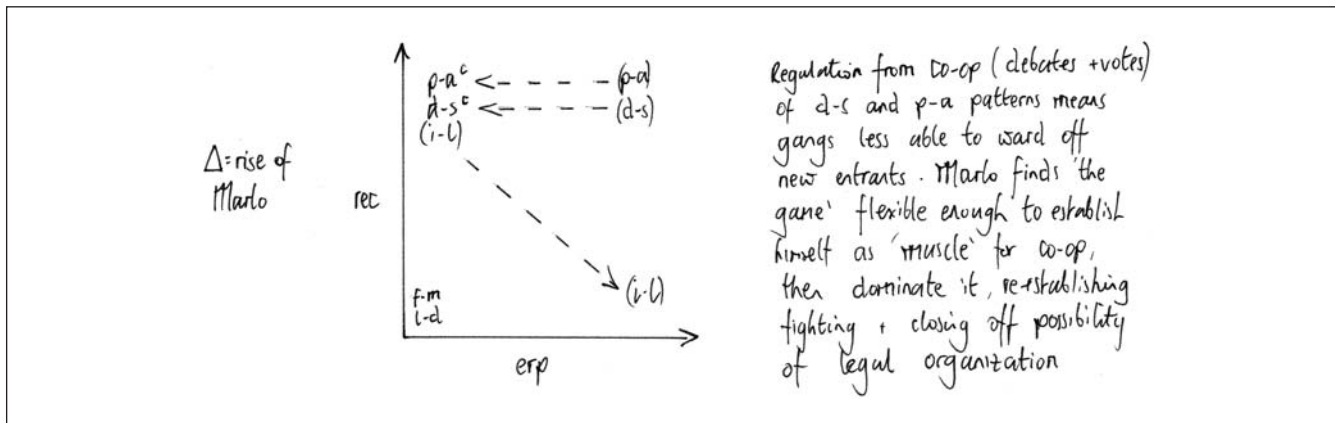 Δ=rise of
Marlo
rec
p-aᶜ <- - - - (p-a)
d-sᶜ <- - - - (d-s)
(i-l)
(i-l)
f-m
l-d
erp
Regulation from co-op (debates +votes)
of d-s and p-a patterns means
gangs less able to ward off
new entrants. Marlo finds 'the
game' flexible enough to establish
himself as 'muscle' for co-op,
then dominate it, re-establishing
fighting + closing off possibility
of legal organization